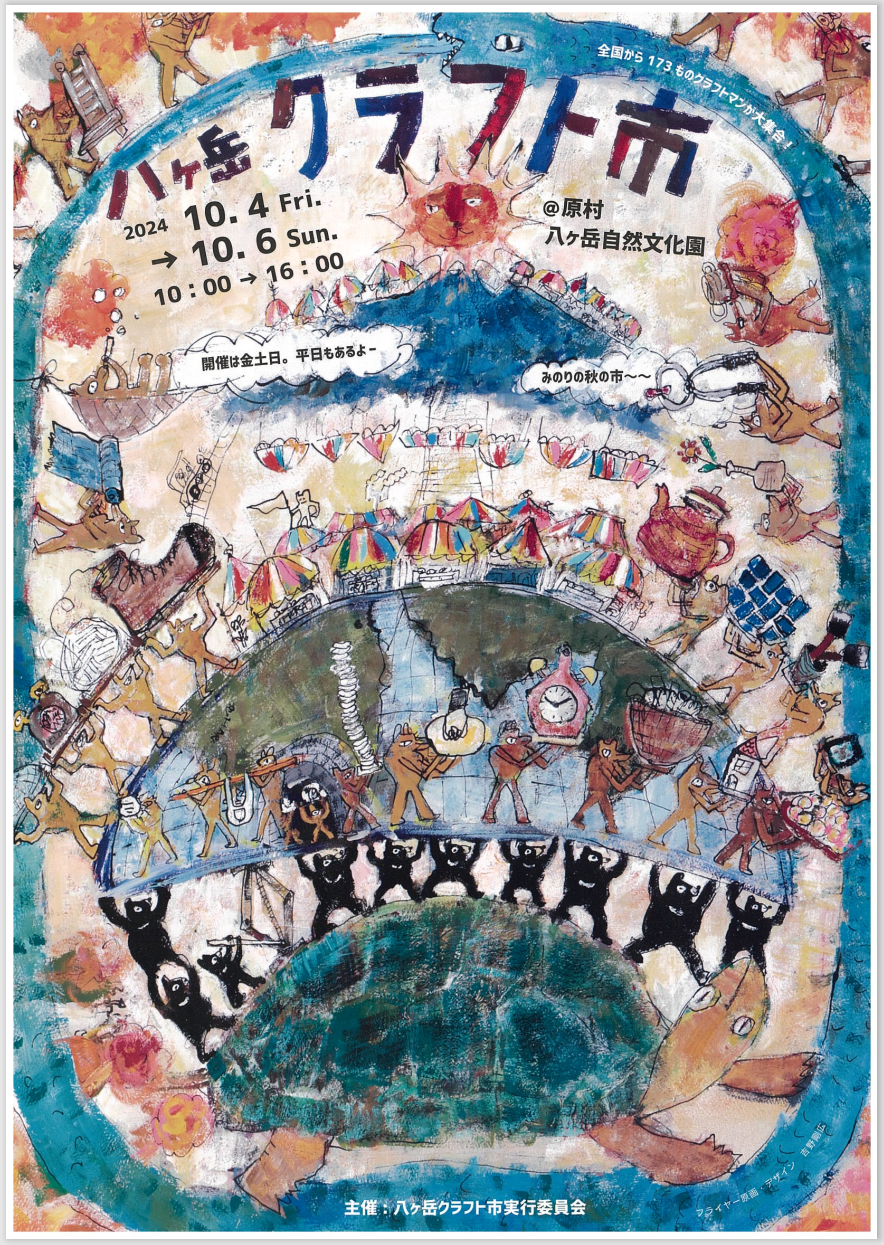 全国から173ものクラフトマンが大集合！
八ヶ岳クラフト市
2024 10.4 Fri.
→ 10.6 Sun.
10：00→16：00
@原村
八ヶ岳自然文化園
開催は金土日。平日もあるよ－
みのりの秋の市～～
主催：八ヶ岳クラフト市実行委員会
フライヤー原画　デザイン　吉野剛広